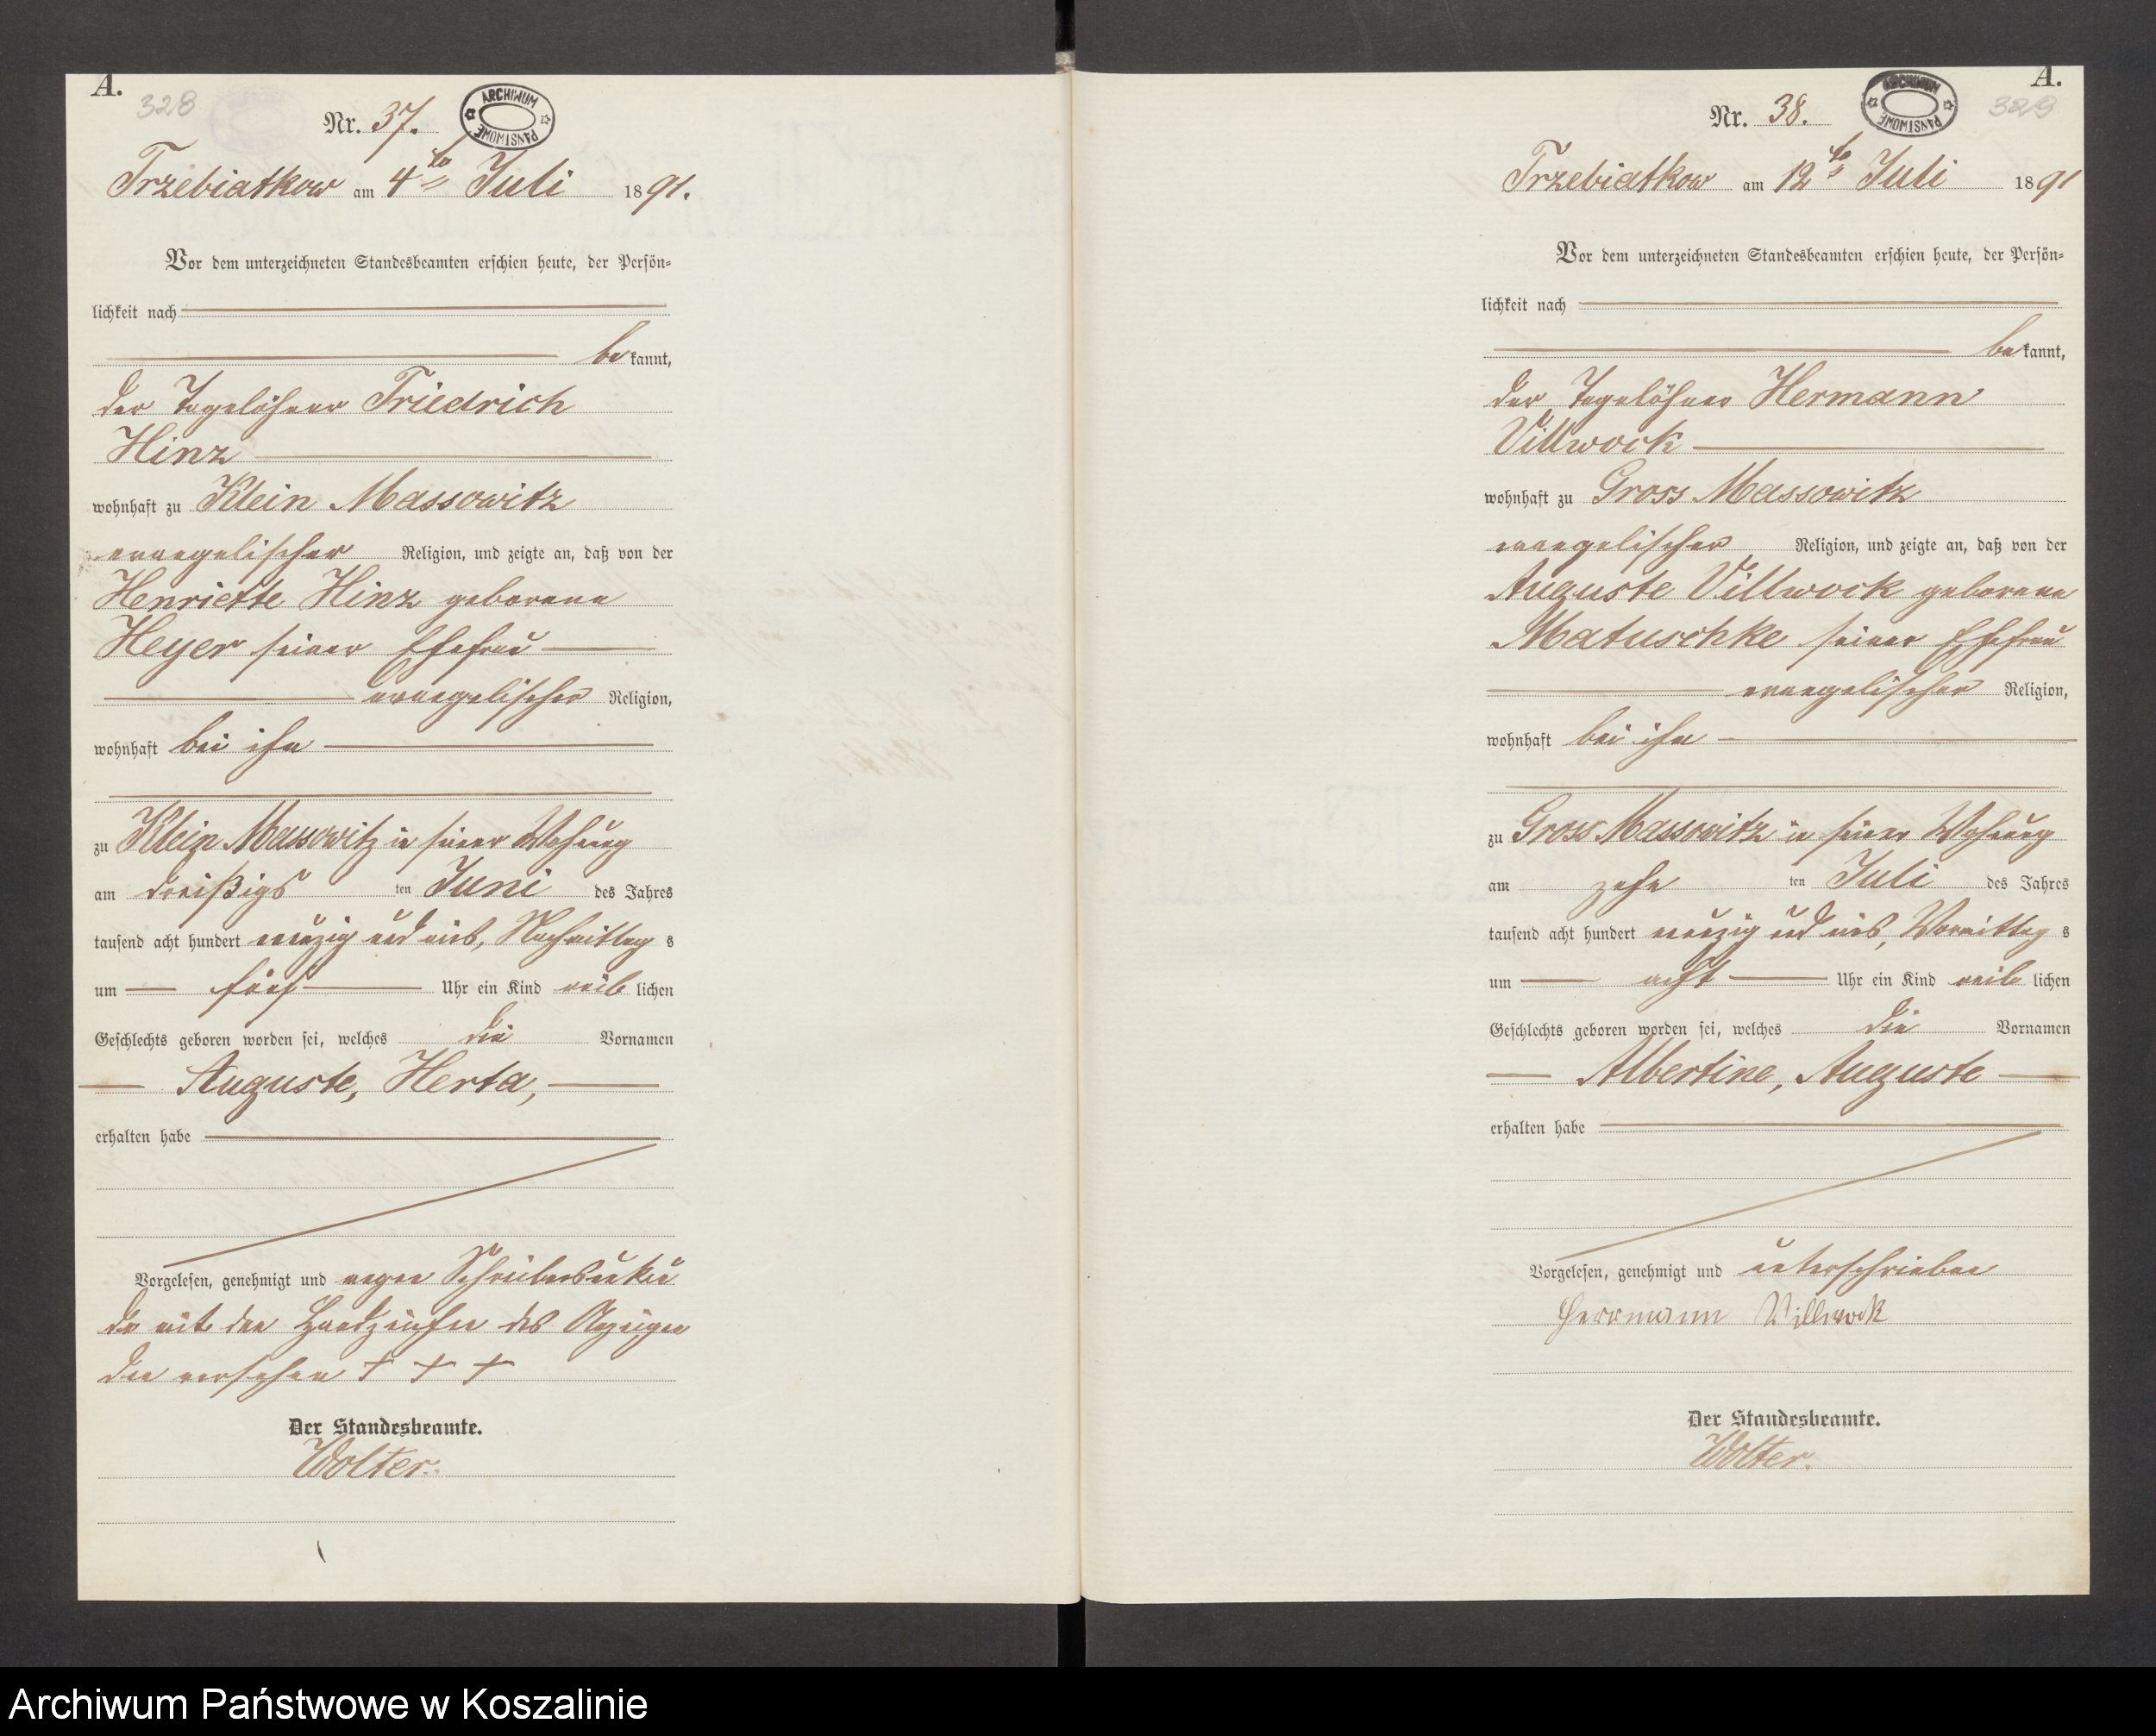 A.
328
Nr. 37.
ARCHIWUM PAŃSTWOWE
Trzebiatkow am 4ten Juli 1891.
Vor dem unterzeichneten Standesbeamten erschien heute, der Persön-
lichkeit nach
bekannt,
der Tagelöhner Friedrich
Hinz
wohnhaft zu Klein Massowitz
evangelischer Religion, und zeigte an, daß von der
Henriette Hinz geborene
Heyer seiner Ehefrau
evangelischer Religion,
wohnhaft bei ihm
zu Klein Massowitz in seiner Wohnung
am dreißigs ten Juni des Jahres
tausend acht hundert neunzig und eins, Nachmittag s
um fünf Uhr ein Kind weib lichen
Geschlechts geboren worden sei, welches die Vornamen
Auguste, Herta,
erhalten habe
Vorgelesen, genehmigt und wegen Schreibensunkun
de mit den Handzeichen des Anzeigen
den versehen + + +
Der Standesbeamte.
Wolter.
A.
329
Nr. 38.
ARCHIWUM PAŃSTWOWE
Trzebiatkow am 12ten Juli 1891
Vor dem unterzeichneten Standesbeamten erschien heute, der Persön-
lichkeit nach
bekannt,
der Tagelöhner Hermann
Villwock
wohnhaft zu Gross Massowitz
evangelischer Religion, und zeigte an, daß von der
Auguste Villwock geborene
Matuschke seiner Ehefrau
evangelischer Religion,
wohnhaft bei ihm
zu Gross Massowitz in seiner Wohnung
am zehn ten Juli des Jahres
tausend acht hundert neunzig und eins, Vormittag s
um acht Uhr ein Kind weib lichen
Geschlechts geboren worden sei, welches die Vornamen
Albertine, Auguste
erhalten habe
Vorgelesen, genehmigt und unterschrieben
Herrmann Villwock
Der Standesbeamte.
Wolter.
Archiwum Państwowe w Koszalinie